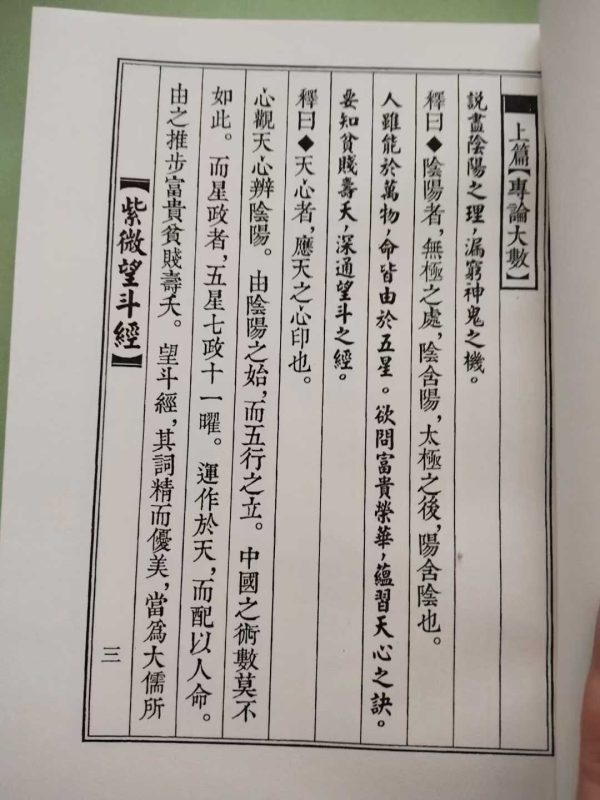 上篇【專論大數】
說盡陰陽之理，漏窮神鬼之機。
釋曰◆陰陽者，無極之處，陰含陽，太極之後，陽含陰也。
人雖能於萬物，命皆由於五星。欲問富貴榮華，蘊習天心之訣。
要知貧賤壽夭，深通望斗之經。
釋曰◆天心者，應天之心印也。
心觀天心辨陰陽。由陰陽之始，而五行之立。中國之術數莫不
如此。而星政者，五星七政十一曜。運作於天，而配以人命。
由之推步富貴貧賤壽夭。望斗經，其詞精而優美，當為大儒所
【紫微望斗經】
三